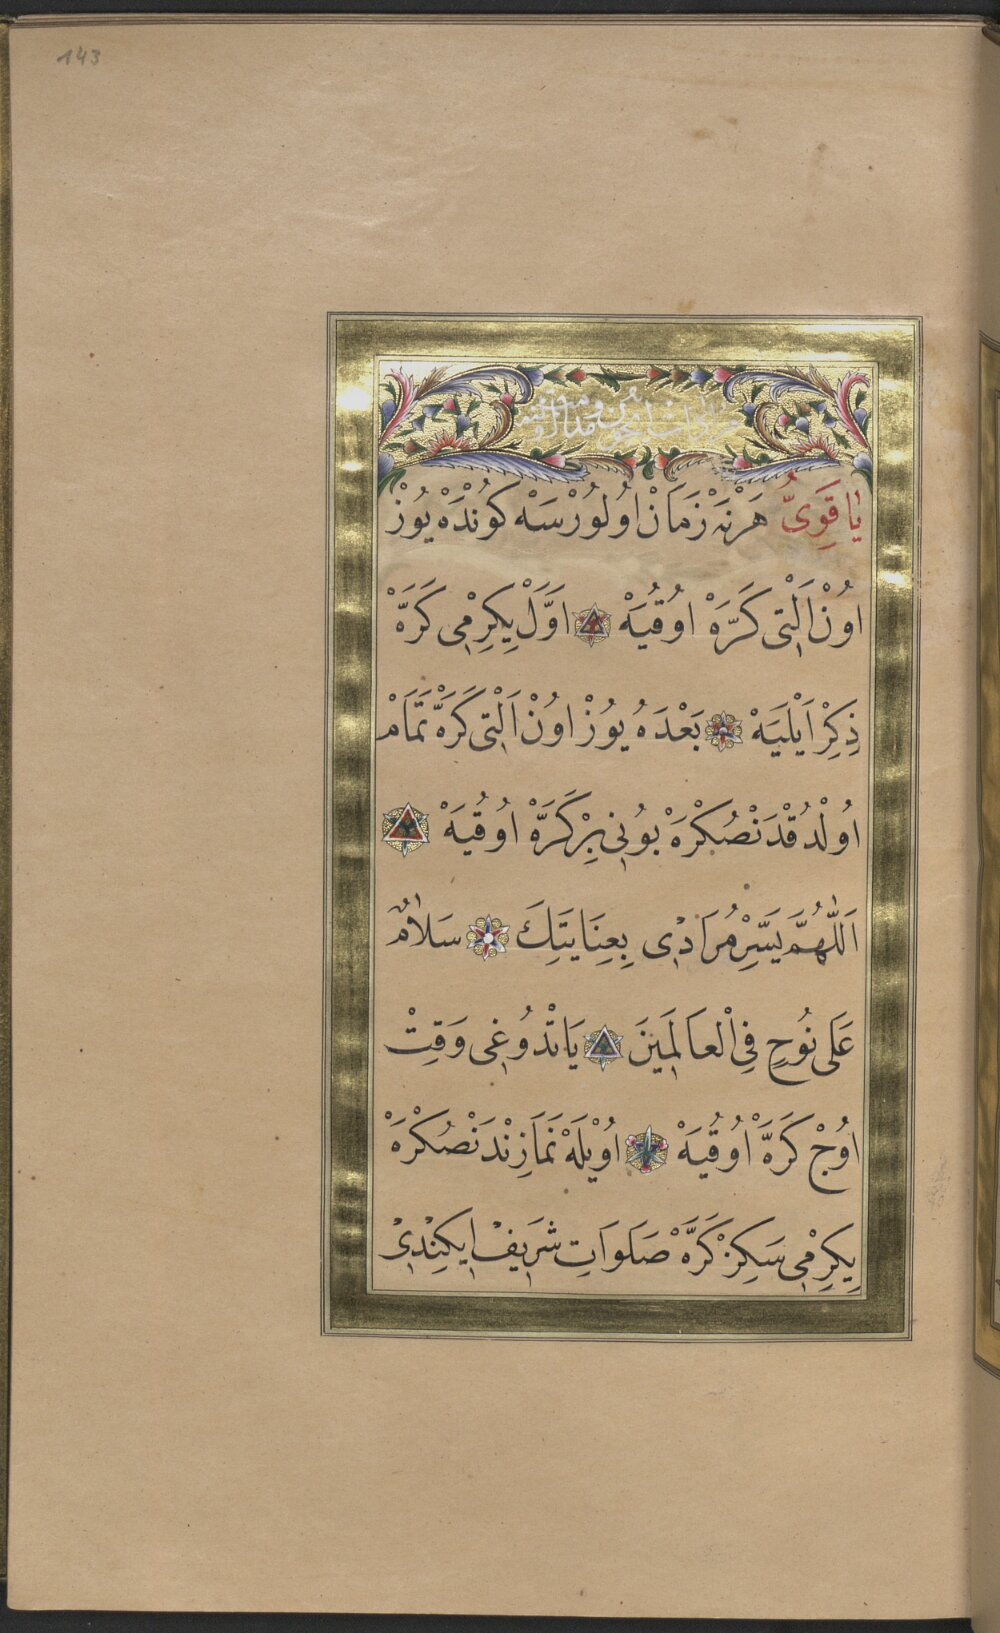 143
يَا قَوِىُّ هَرْنَه زَمَانْ اُولُورْسَه كُونْدَهْ يُوزْ
اُونْ اَلْتِى كَرَّهْ اُوقُيَهْ اَوَّلْ يِكِرْمِى كَرَّهْ
ذِكِرْ اَيْلَيَهْ بَعْدَهُ يُوزْ اُونْ اَلْتِى كَرَّهْ تَمَامْ
اُولْدُقْدَنْصُكْرَهْ بُونِى بِرْ كَرَّهْ اُوقُيَهْ
اَللّٰهُمَّ يَسِّرْ مُرَادِى بِعِنَايَتِكَ سَلَامٌ
عَلَى نُوحٍ فِى الْعَالَمِينَ يَاتْدُوغِى وَقِتْ
اُوجْ كَرَّهْ اُوقُيَهْ اُويْلَهْ نَمَازِنْدَنْصُكْرَهْ
يِكِرْمِى سَكِزْ كَرَّهْ صَلَوَاتِ شَرِيفْ اِيكِنْدِىْ